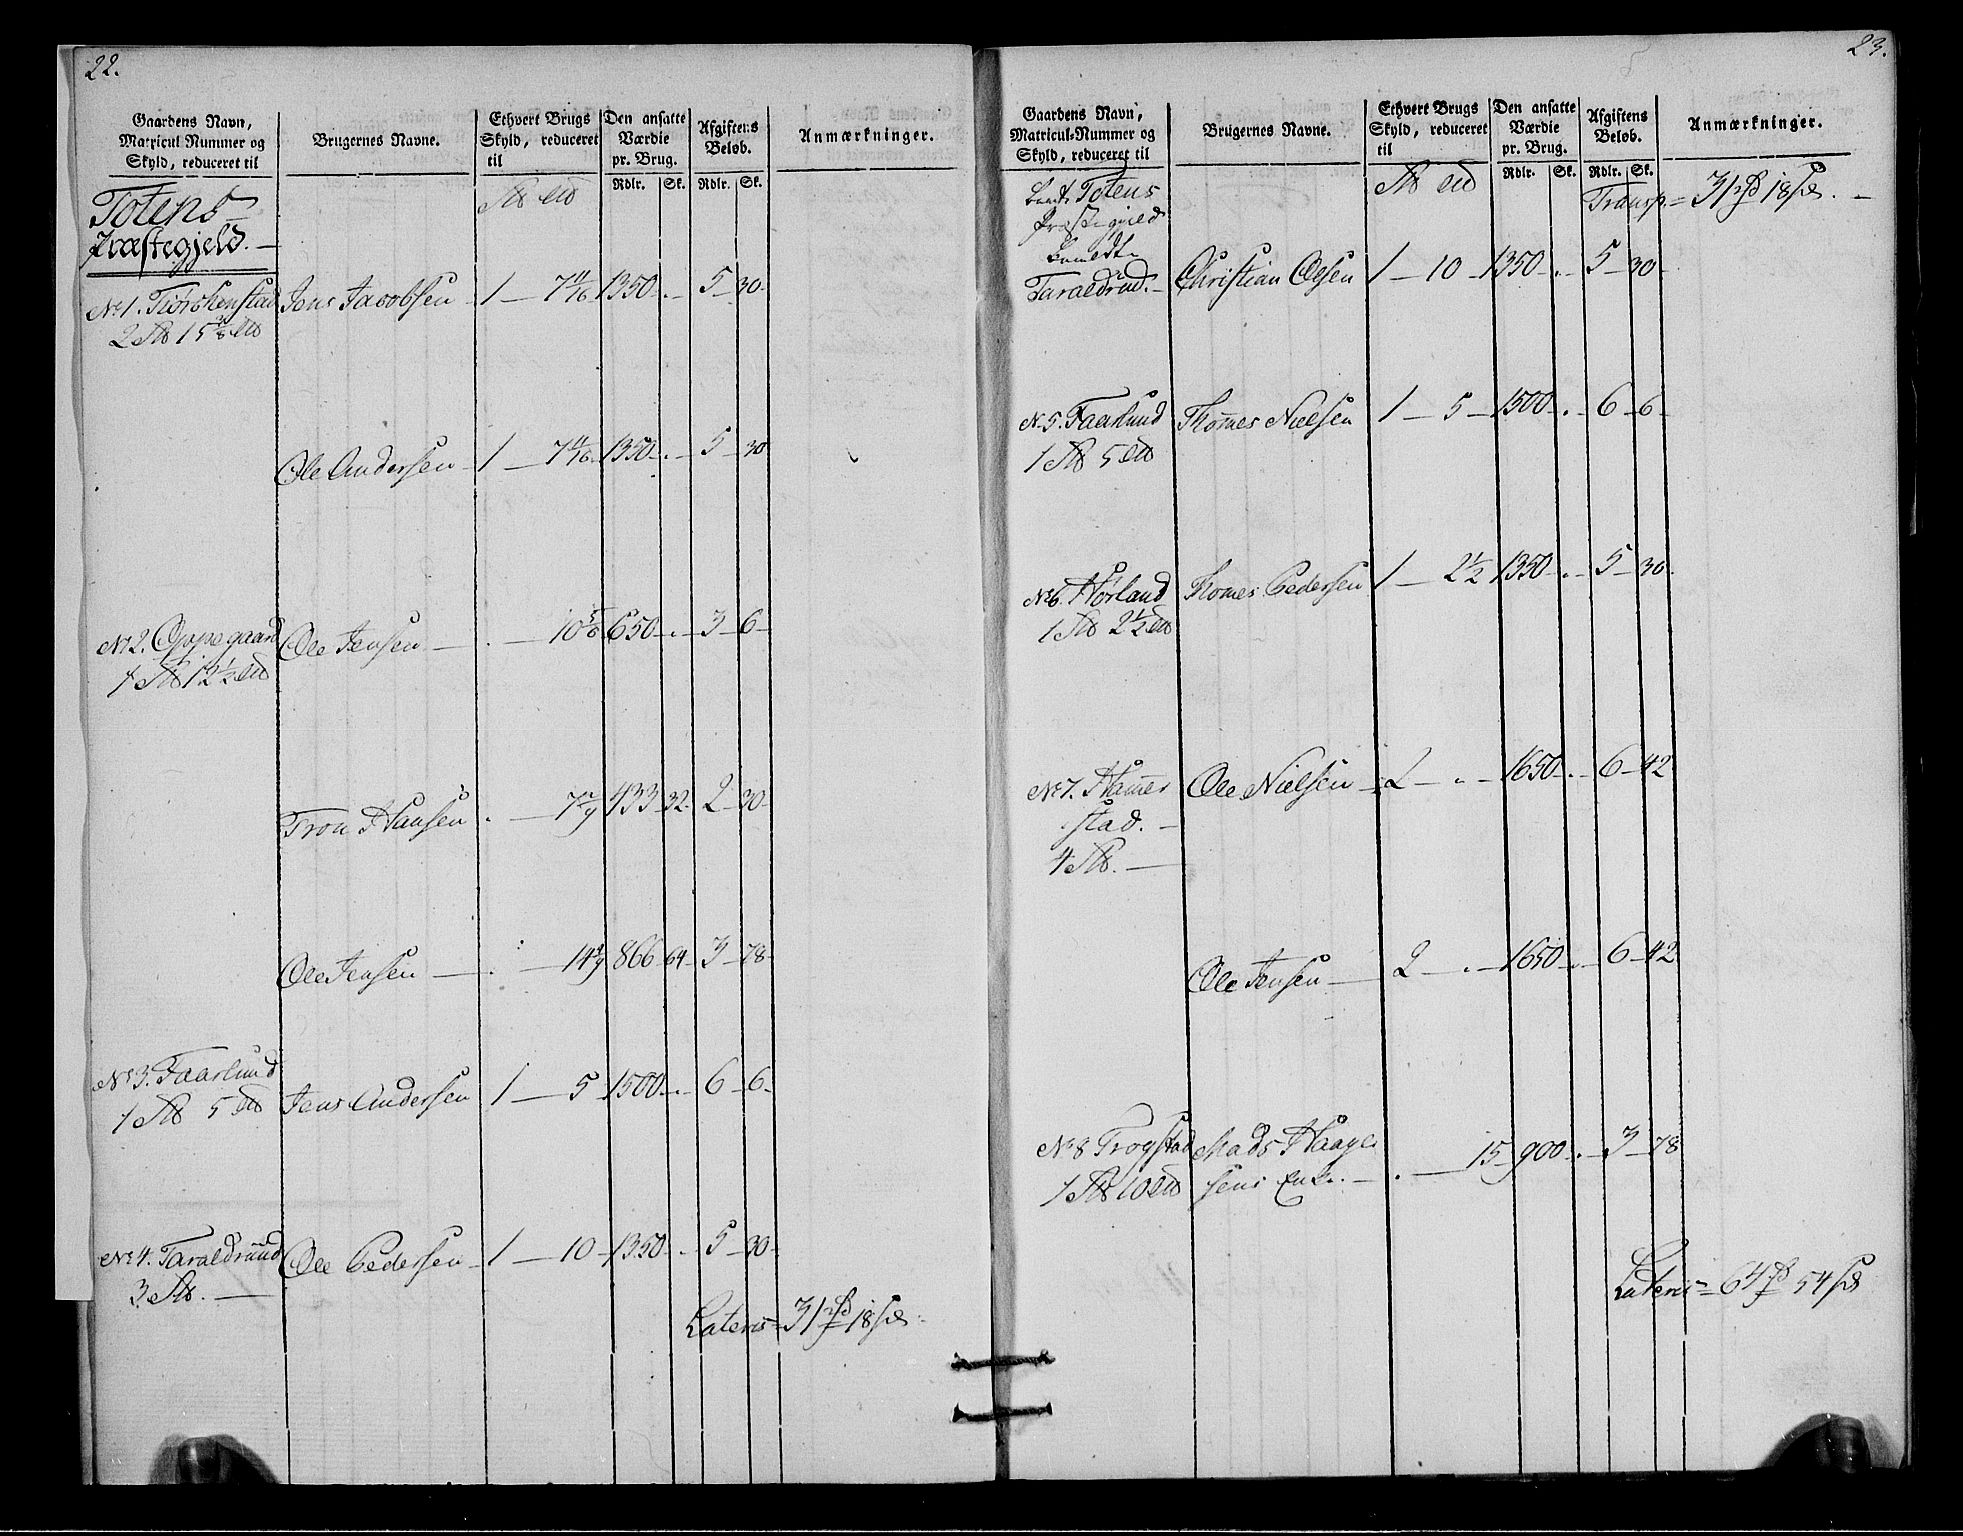 22.
Gaardens Navn, Matricul Nummer og Skyld, reduceret til
Brugernes Navne.
Ethvert Brugs Skyld, reduceret til
Den ansatte Værdie pr. Brug.
Afgiftens Beløb.
Anmærkninger.
Rdlr. Sk. Rdlr. Sk.
Totens
Præstegjeld.
No 1. Jens Jacobsen 1 — 7 11/16 1350 - . - 5 - 30
Ole Andersen 1 — 7 11/16 1350 - . - 5 - 30
No 2. Oppegaard Ole Jensen . — 10 5/6 650 - . - 3 - 6
Tron Hansen . — 7 2/9 433 - 32 - 2 - 30
Ole Jensen . — 14 4/9 866 - 64 - 3 - 78
No 3. Faarlund Jens Andersen 1 — 5 1500 - . - 6 - 6
No 4. Taraldrud Ole Pedersen 1 — 10 - 1350 - . - 5 - 30
Lateris = 31 18
23.
Gaardens Navn, Matricul-Nummer og Skyld, reduceret til
Brugernes Navne.
Ethvert Brugs Skyld, reduceret til
Den ansatte Værdie pr. Brug.
Afgiftens Beløb.
Anmærkninger.
Rdlr. Sk. Rdlr. Sk.
Transp. = 31 18
Totens
Præstegjeld
Taraldrud. Christian Olsen 1 — 10 - 1350 - . - 5 - 30
No 5. Faarlund Thomes Nielsen 1 — 5 - 1500 - . - 6 - 6
No 6. Hørland Thomes Pedersen 1 — 2 1/2 1350 - . - 5 - 30
No 7. Hamer Ole Nielsen 2 — . - 1650 - . - 6 - 42
stad.
Ole Jensen 2 — . - 1650 - . - 6 - 42
No 8 Trogstad Mads Haage
sens Enke . — 15 - 900 - . - 3 - 78
Lateris = 64 54